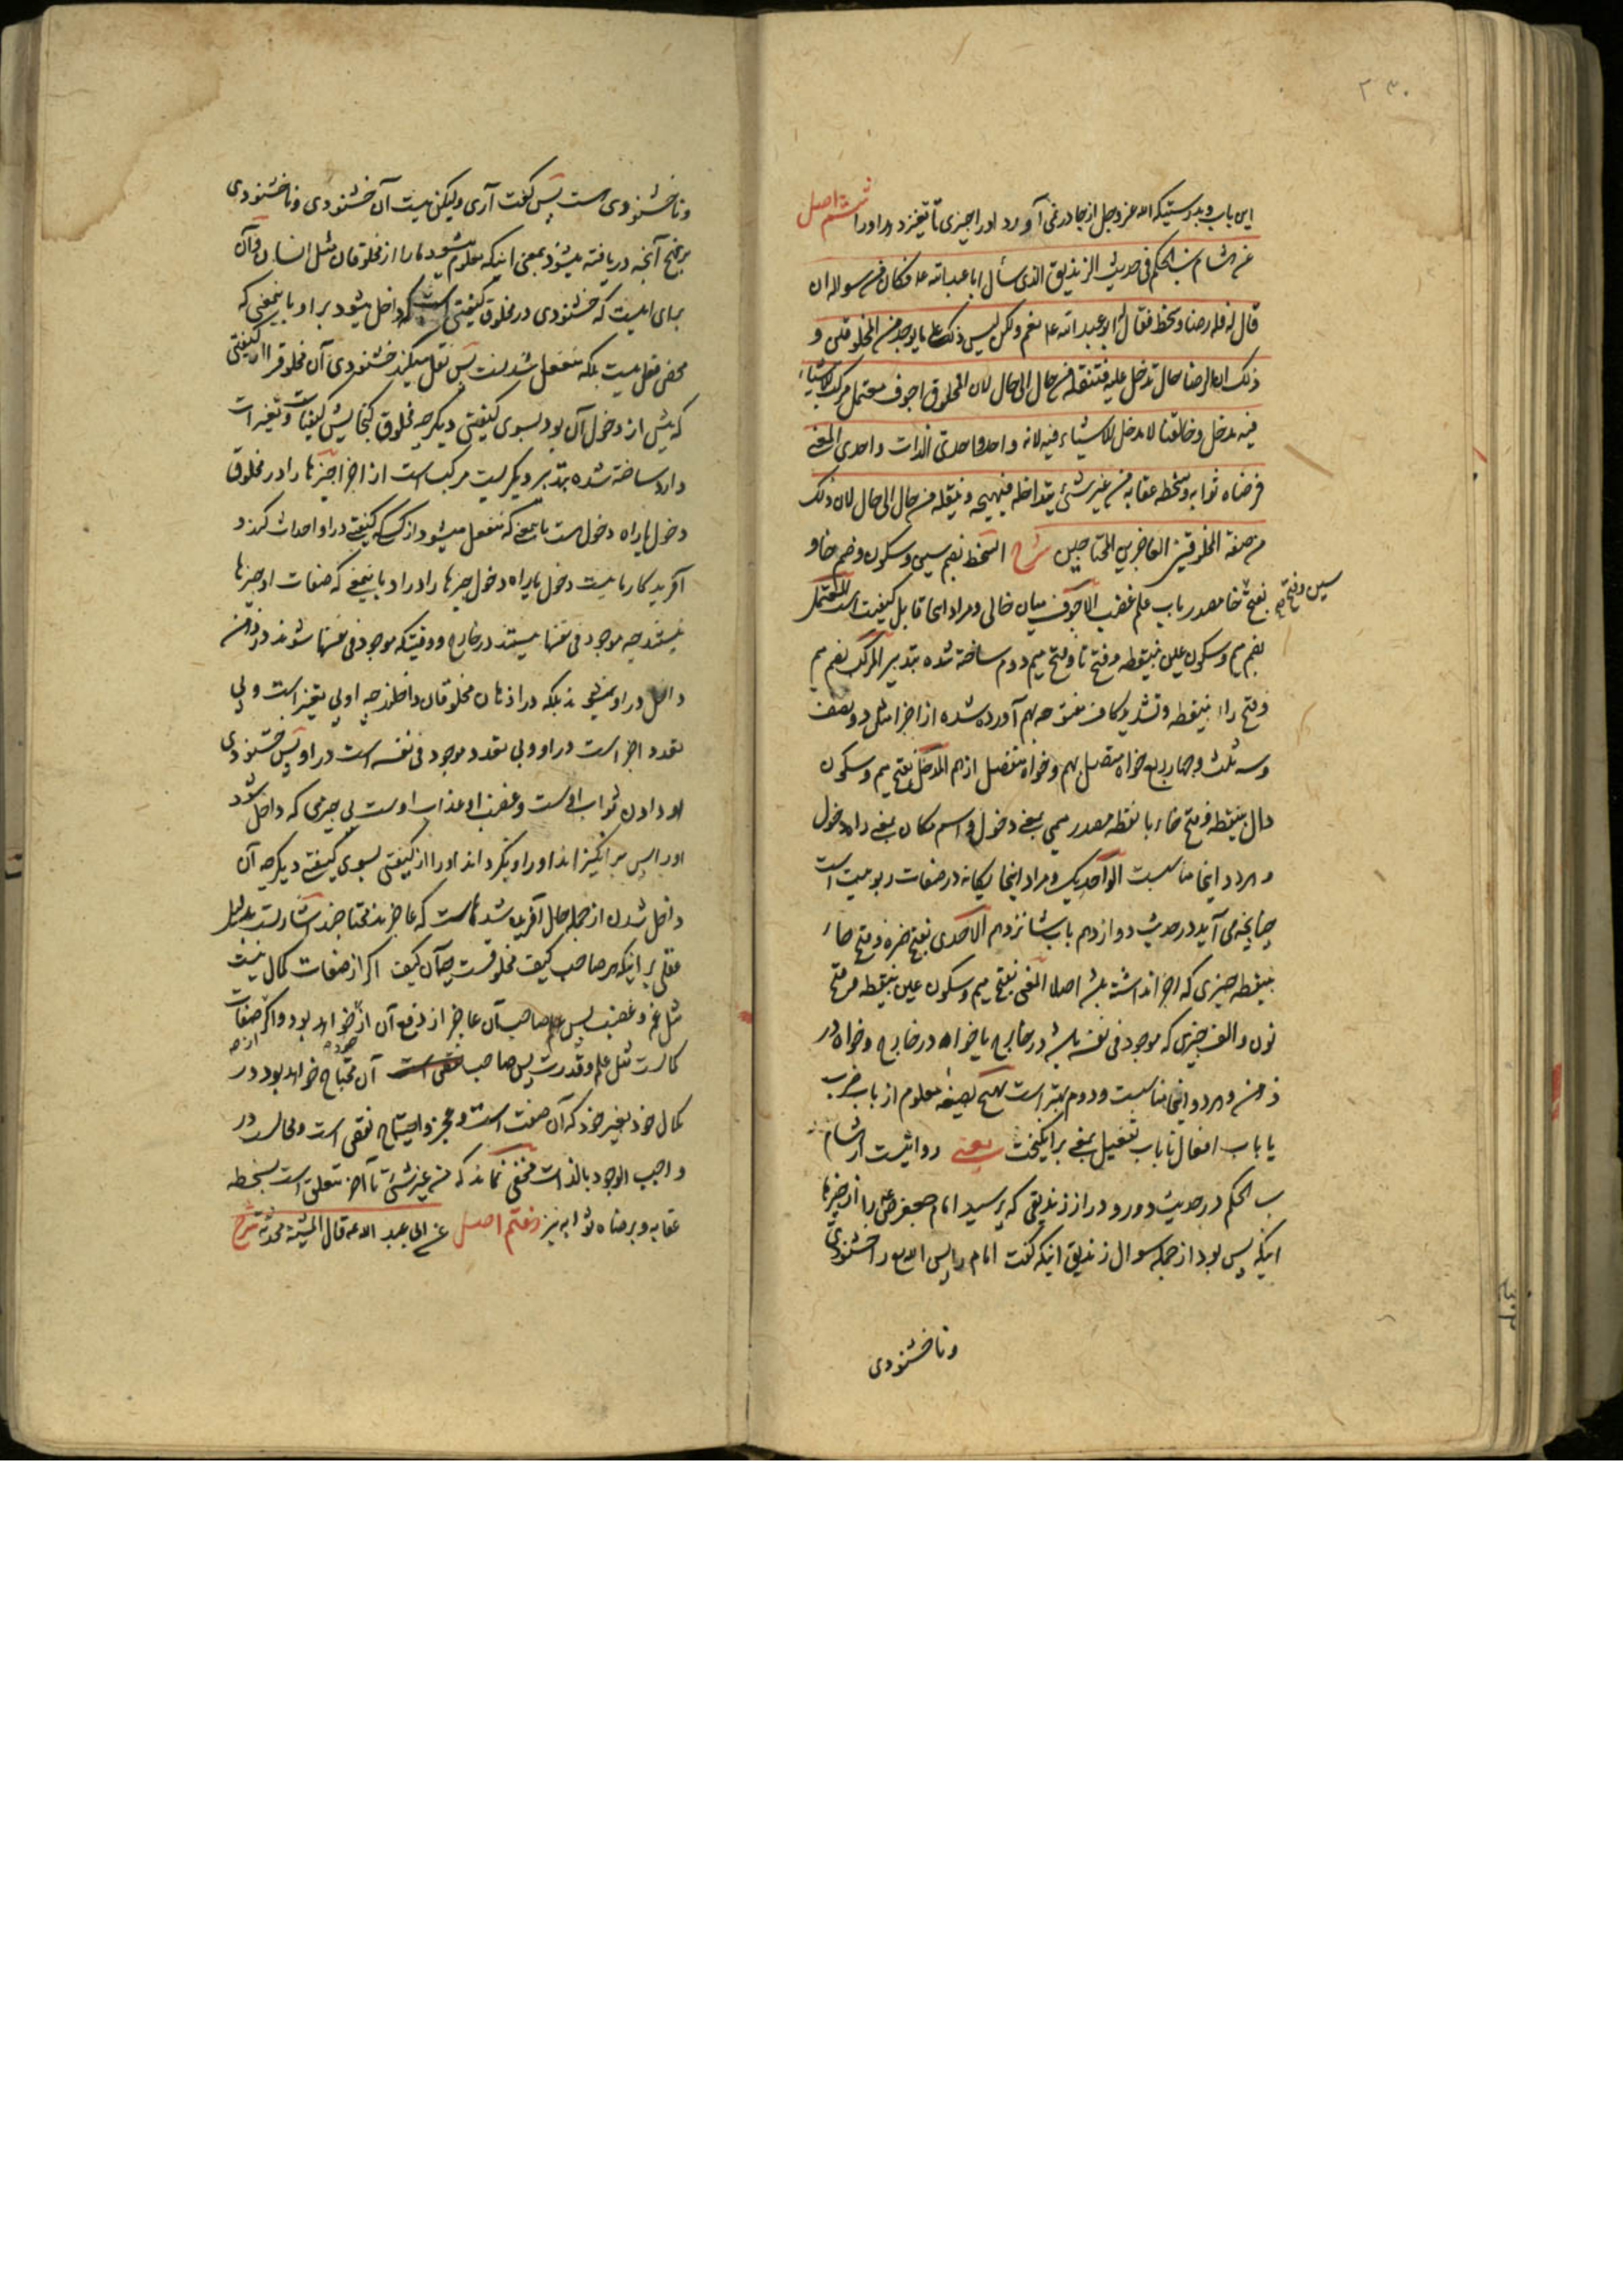 ۲۳۰
این باب و بدرستیکه الله عزوجل از جا در نمی آورد او را چیزی تا تغیر دهد او را ششم اصل
عن هشام بن الحکم فی حدیث الزندیق الذی سأل ابا عبد الله ع فکان من سواله ان
قال له فله رضا و سخط فقال ابو عبد الله ع نعم ولکن لیس ذلک علی ما یوجد من المخلوقین و
ذلک ان الرضا حال تدخل علیه فتنقله من حال الی حال لان المخلوق اجوف معتمل مرکب للاشیاء
فیه مدخل و خالقنا لا مدخل للاشیاء فیه لانه واحد واحدی الذات واحدی المعنی
فرضاه ثوابه و سخطه عقابه من غیر شئ یتداخله فیهیجه و ینقله من حال الی حال لان ذلک
من صفة المخلوقین العاجزین المحتاجین شرح السخط بضم سین و سکون و ضم خا و
سین و فتح
بفتح خا مصدر باب علم غضب الاجوف میان خالی و مراد اینجا قابل کیفیت است المعتمل
بضم میم و سکون عین بینقطه و فتح تا و فتح میم دوم ساخته شده بتدبیر المرکب بضم میم
و فتح راء بینقطه و تشدید کاف مفتوحه بهم آورده شده از اجزا مثل دو نصف
و سه ثلث و چهار ربع خواه متصل بهم و خواه منفصل از هم المدخل بفتح میم و سکون
دال بینقطه و فتح خاء با نقطه مصدر میمی بمعنی دخول و اسم مکان بمعنی راه دخول
و هر دو اینجا مناسبست الواحد یک و مراد اینجا یگانه در صفات ربوبیت است
چنانچه می آید در حدیث دوازدهم باب شانزدهم الاحدی بفتح همزه و فتح حاء
بینقطه چیزی که اجزا نداشته باشد اصلا المعنی بفتح میم و سکون عین بینقطه و فتح
نون و الف چیزی که موجود فی نفسه باشد در خارج یا خواه در خارج و خواه در
ذهن و هر دو اینجا مناسبست و دوم بهتر است یهیج بصیغه معلوم از باب ضرب
یا باب افعال یا باب تفعیل بمعنی برانگیخت یعنی روایتست از هشام
بن الحکم در حدیث دور و دراز زندیقی که پرسید امام جعفر ص ع را از چیزها
اینکه پس بود از جمله سوال زندیق اینکه گفت امام را پس الله را خشنودی
و ناخشنودی
و ناخشنودی هست پس گفت آری ولیکن نیست آن خشنودی و ناخشنودی
بر نهج آنچه دریافته میشود بمعنی اینکه معلوم میشود ما را از مخلوقان مثل انسان و آن
برای اینست که خشنودی در مخلوق کیفیتی است که داخل میشود بر او باینمعنی که
محض فعل نیست بلکه منفعل شدنست پس نقل میکند خشنودی آن مخلوق را از کیفیتی
که پیش از دخول آن بود بسوی کیفیتی دیگر چه مخلوق گنجایش کیفیات و تغیرات
دارد ساخته شده بتدبیر دیگریست مرکب است از اجزا چیزها را در مخلوق
دخول یا راه دخول هست باینمعنی که منفعل میشود از کسی که کیفیتی در او احداث کند و
آفریدگار ما نیست دخول یا راه دخول چیزها را در او باینمعنی که صفات او چیزها
نیستند چه موجود فی نفسها نیستند در خارج و وقتیکه موجود فی نفسها شوند در ذهن
داخل در او نمیشوند بلکه در اذهان مخلوقان داخلند چه او بی تغیر است و بی
تعدد اجزا است در او و بی تعدد موجود فی نفسه است در او پس خشنودی
او دادن ثواب اوست و غضب او عذاب اوست بی چیزی که داخل شود
او را پس برانگیزاند او را و بگرداند او را از کیفیتی بسوی کیفیتی دیگر چه آن
داخل شدن از جمله حال آفریده شدهاست که عاجزند محتاجند اشارتست بدلیل
عقلی بر اینکه هر صاحب کیف مخلوقست چه آن کیف اگر از صفات کمال نیست
مثل غم و غضب پس صاحب آن عاجز از دفع آن از خود خواهد بود و اگر صفات
کمالست مثل علم و قدرت پس صاحب آن محتاج خواهد بود در
کمال خود بغیر خود که آن صفت است و عجز و احتیاج نقص است و محالست در
واجب الوجود بالذات مخفی نماند که من غیر شئ تا آخر متعلق است بسخطه
عقابه و برضاه ثوابه نیز هفتم اصل عن ابی عبد الله ع قال المشیة محدثة شرح